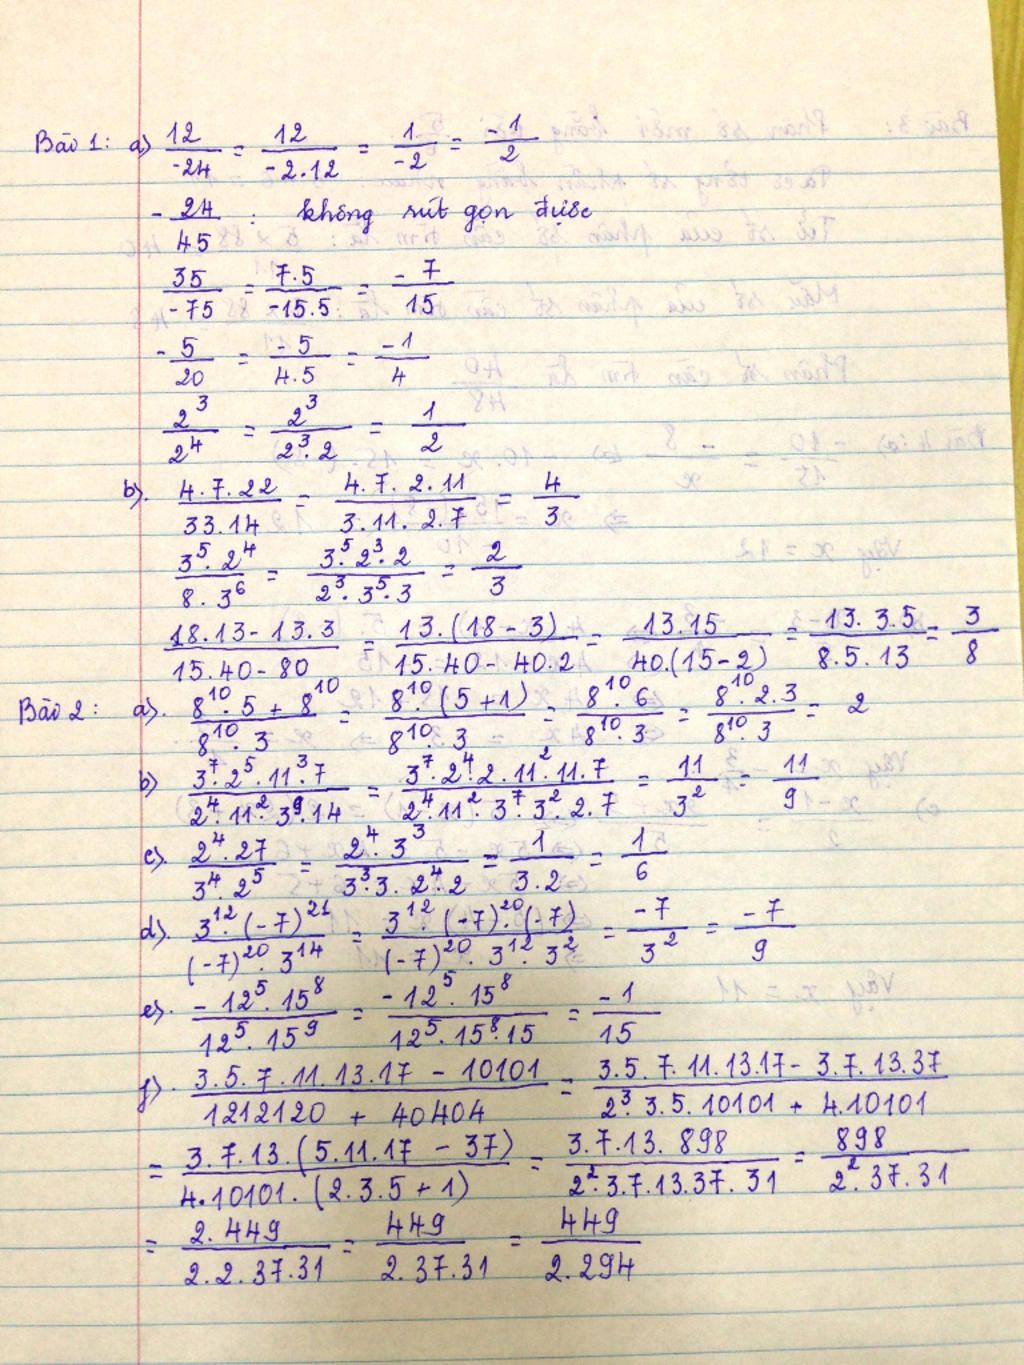 Bài 1: a) 12/-24 = 12/-2.12 = 1/-2 = -1/2
-24/45 : không rút gọn được
35/-75 = 7.5/-15.5 = -7/15
-5/20 = -5/4.5 = -1/4
2^3/2^4 = 2^3/2^3.2 = 1/2
b). 4.7.22/33.14 = 4.7.2.11/3.11.2.7 = 4/3
3^5.2^4/8.3^6 = 3^5.2^3.2/2^3.3^5.3 = 2/3
18.13-13.3/15.40-80 = 13.(18-3)/15.40-40.2 = 13.15/40.(15-2) = 13.3.5/8.5.13 = 3/8
Bài 2: a). 8^10.5 + 8^10/8^10.3 = 8^10.(5+1)/8^10.3 = 8^10.6/8^10.3 = 8^10.2.3/8^10.3 = 2
b) 3^7.2^5.11^3.7/2^4.11^2.3^9.14 = 3^7.2^4.2.11^2.11.7/2^4.11^2.3^7.3^2.2.7 = 11/3^2 = 11/9
c). 2^4.27/3^4.2^5 = 2^4.3^3/3^3.3.2^4.2 = 1/3.2 = 1/6
d). 3^12.(-7)^21/(-7)^20.3^14 = 3^12.(-7)^20.(-7)/(-7)^20.3^12.3^2 = -7/3^2 = -7/9
e). -12^5.15^8/12^5.15^9 = -12^5.15^8/12^5.15^8.15 = -1/15
f). 3.5.7.11.13.17 - 10101/1212120 + 40404 = 3.5.7.11.13.17 - 3.7.13.37/2^3.3.5.10101 + 4.10101
= 3.7.13.(5.11.17 - 37)/4.10101.(2.3.5+1) = 3.7.13.898/2^2.3.7.13.37.31 = 898/2^2.37.31
= 2.449/2.2.37.31 = 449/2.37.31 = 449/2.294